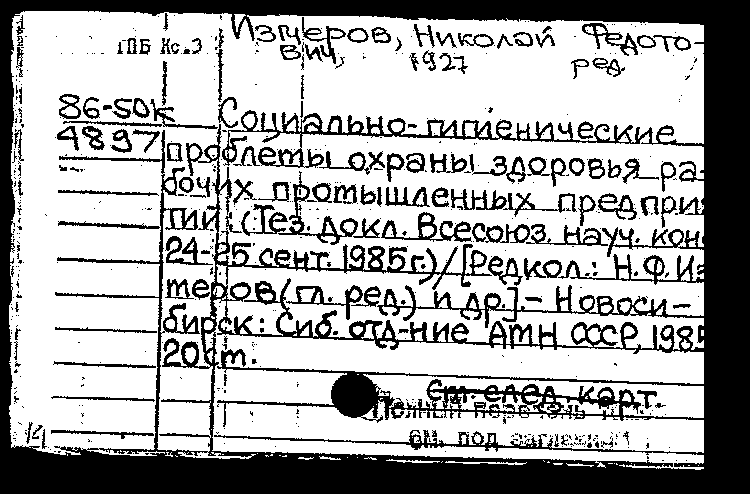 ГПБ Кс.3 Изтеров, Николай Федото-
вич, 1927 ред.
86-50к Социально-гигиенические
4897 проблемы охраны здоровья ра-
бочих промышленных предприя
тий: (Тез. докл. Всесоюз. науч. кон
24-25 сент. 1985г.)/[Редкол.: Н.Ф.Из
теров (гл. ред.) и др.].- Новоси-
бирск: Сиб. отд-ние АМН СССР, 1985
20 см.
См. след. карт.
Полный перечень
см. под заглавием
14